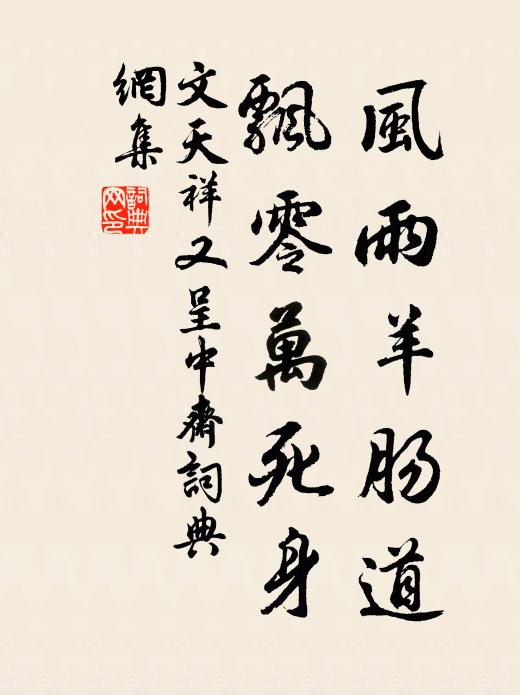 風雨羊腸道
飄零萬死身
文天祥又呈中齋詞典
網集
詞典
網印